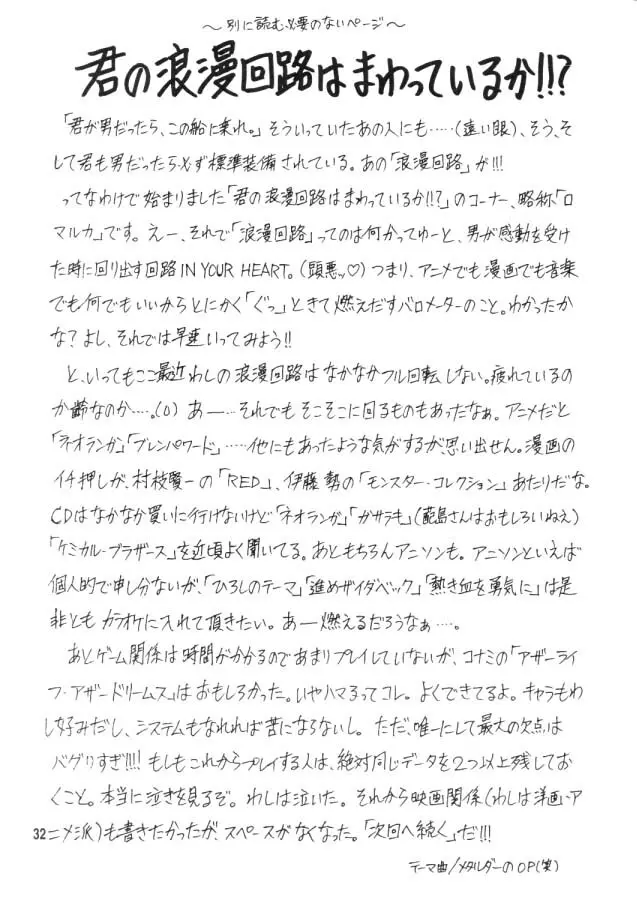 〜別に読む必要のないページ〜
君の浪漫回路はまわっているか!!?
「君が男だったら、この船に乗れ。」そういっていたあの人にも……(遠い眼)、そう、そ
して君も男だったら必ず標準装備されている。あの「浪漫回路」が!!!
ってなわけで始まりました「君の浪漫回路はまわっているか!!?」のコーナー、略称「ロ
マルカ」です。えー、それで「浪漫回路」ってのは何かってゆーと、男が感動を受け
た時に回り出す回路IN YOUR HEART。(頭悪ッ♡) つまり、アニメでも漫画でも音楽
でも何でもいいからとにかく「ぐっ」ときて燃えだすバロメーターのこと。わかったか
な? よし、それでは早速いってみよう!!
と、いってもここ最近わしの浪漫回路はなかなかフル回転しない。疲れているの
か齢なのか……。(0) あー……それでもそこそこに回るものもあったなぁ。アニメだと
「ネオランガ」「ブレンパワード」……他にもあったような気がするが、思い出せん。漫画の
イチ押しが、村枝賢一の「RED」、伊藤勢の「モンスター・コレクション」あたりだな。
CDはなかなか買いに行けないけど「ネオランガ」「ガサラキ」(蓜島さんはおもしろいねえ)
「ケミカル・ブラザース」を近頃よく聞いてる。あともちろんアニソンも。アニソンといえば
個人的で申し分ないが、「ひろしのテーマ」「進めザイダベック」「熱き血を勇気に」は是
非ともカラオケに入れて頂きたい。あー燃えるだろうなぁ……。
あとゲーム関係は時間がかかるのであまりプレイしていないが、コナミの「アザーライ
フ・アザードリームス」はおもしろかった。いやハマるってコレ。よくできてるよ。キャラもわ
し好みだし、システムもなれれば苦にならないし。ただ、唯一にして最大の欠点は
バグりすぎ!!!! もしもこれからプレイする人は、絶対同じデータを2つ以上残してお
くこと。本当に泣きを見るぞ。わしは泣いた。それから映画関係(わしは洋画・ア
ニメ派)も書きたかったが、スペースがなくなった。「次回へ続く」だ!!!
32
テーマ曲/メタルダーのOP(笑)